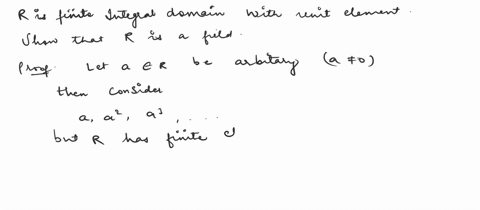 R is finite Integral domain with unit element.
Show that R is a field.
Proof Let a ∈ R be arbitary (a ≠ 0)
then consider
a, a², a³, ....
but R has finite